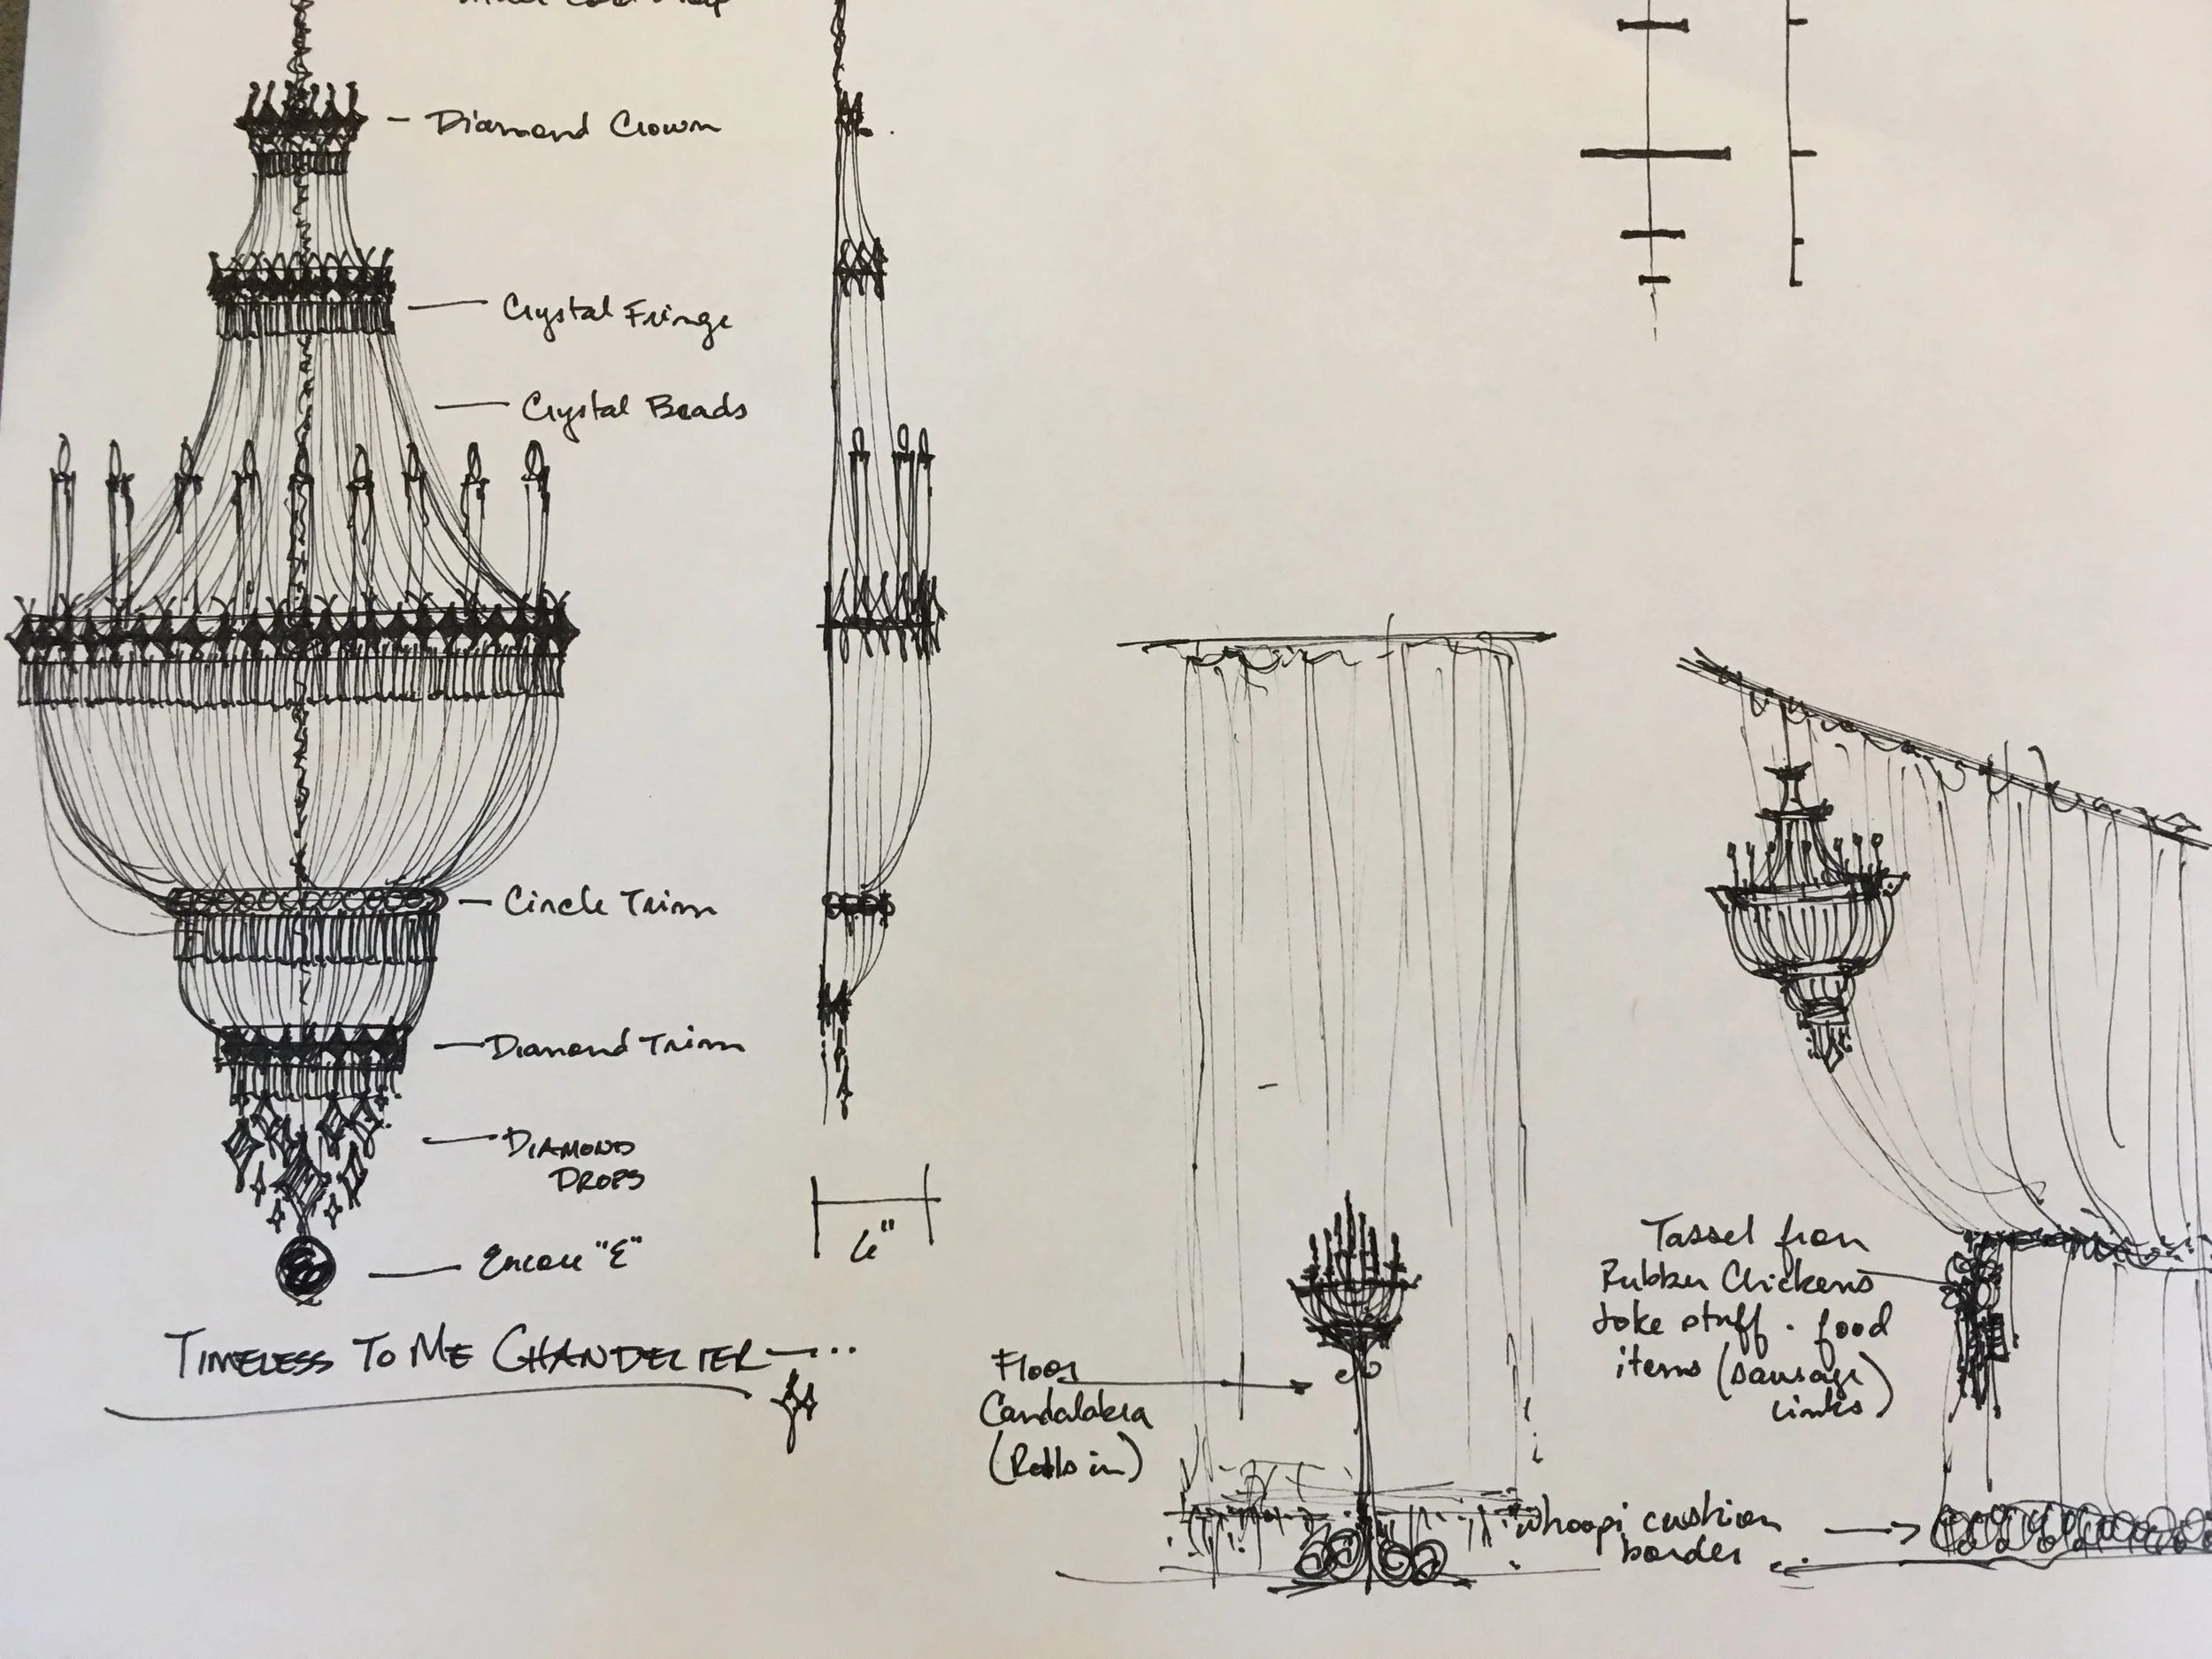 Diamond Crown
Crystal Fringe
Crystal Beads
Circle Trim
Diamond Trim
DIAMOND
DROPS
Encore "E"
TIMELESS TO ME CHANDELIER
6"
Floor
Candalabra
(Rolls in)
Tassel from
Rubber Chickens
Joke stuff. food
items (sausage
links)
whoopi cushion
border